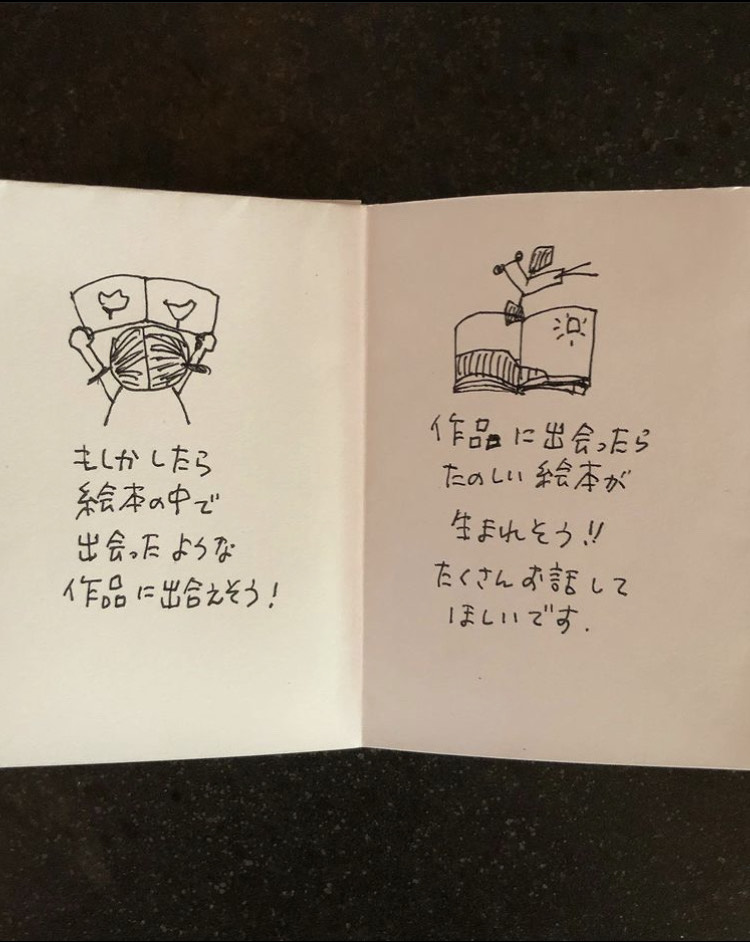 もしかしたら
絵本の中で
出会ったような
作品に出合えそう!
作品に出会ったら
たのしい絵本が
生まれそう!!
たくさんお話して
ほしいです.